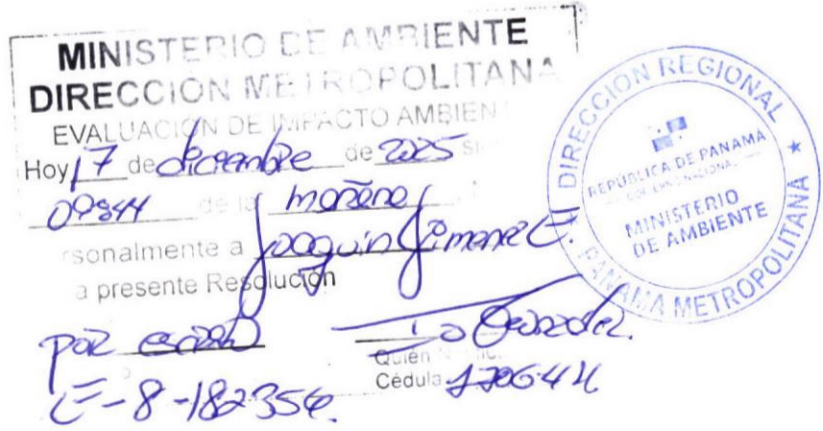 MINISTERIO DE AMBIENTE
DIRECCIÓN METROPOLITANA
EVALUACIÓN DE IMPACTO AMBIEN
Hoy 17 de diciembre de 2025
09:44 de la mañana
rsonalmente a Joaquin Jimenez
a presente Resolución
por escrito
Quién
Cédula
E-8-182356
DIRECCIÓN REGIONAL
REPÚBLICA DE PANAMÁ
GOBIERNO NACIONAL
MINISTERIO
DE AMBIENTE
PANAMÁ METROPOLITANA